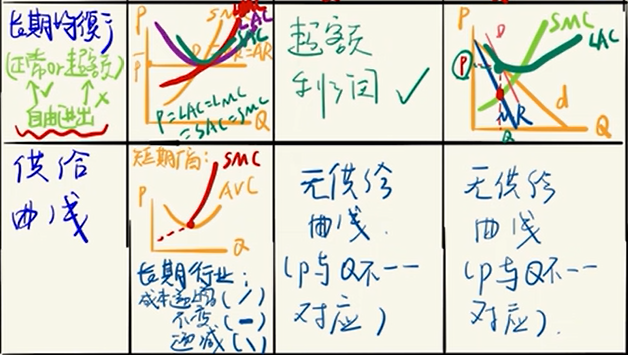 长期均衡
(正常or超额)
自由进出
P
SMC
LAC
SAC
P
P=LAC=LMC
=SAC=SMC
Q
超额
利润 ✓
P
D
SMC
LAC
P
MR
d
Q
供给
曲线
短期厂商:
P
SMC
AVC
Q
长期行业:
成本递增(/)
不变(-)
递减(\)
无供给
曲线.
(P与Q不一一
对应)
无供给
曲线
(P与Q不一一
对应).